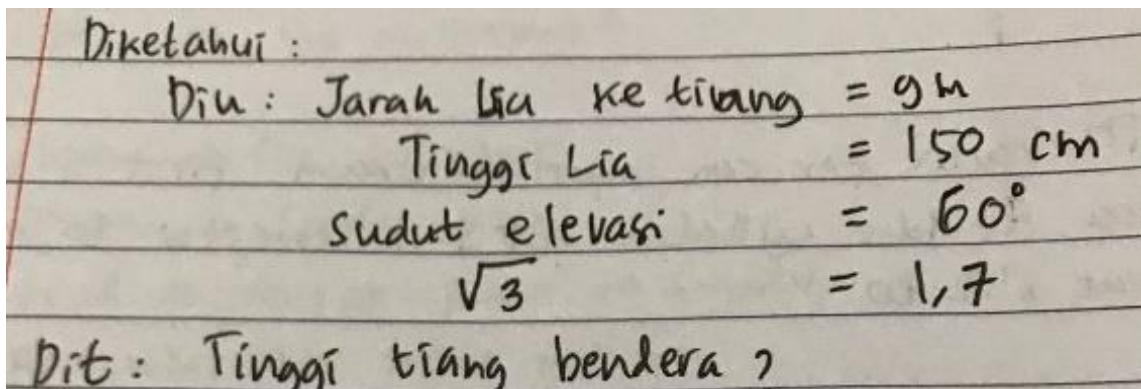 Diketahui :
Dik : Jarak Lia ke tiang = 9 m
Tinggi Lia = 150 cm
sudut elevasi = 60°
√3 = 1,7
Dit : Tinggi tiang bendera ?